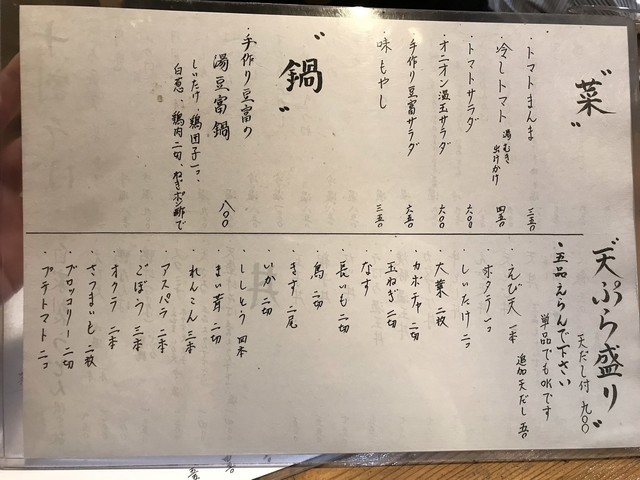 "菜"
・トマトまんま 三五〇
・冷しトマト 湯むき 出汁かけ 四五〇
・トマトサラダ 六〇〇
・オニオン温玉サラダ 六〇〇
・手作り豆富サラダ 六五〇
・味もやし 三五〇
"鍋"
・手作り豆富の
湯豆富鍋 八〇〇
しいたけ、鶏団子一コ、
白葱、鶏肉二切、ねぎポン酢で
"天ぷら盛り"
天だし付 九〇〇
・五品えらんで下さい
単品でもOKです
追加天だし 五〇
・えび天 一本
・ホタテ 一コ
・しいたけ 二コ
・大葉 二枚
・カボチャ 二切
・玉ねぎ 二切
・なす
・長いも 二切
・鳥 二切
・きす 二尾
・いか 二切
・ししとう 四本
・まい茸 二切
・れんこん 三本
・アスパラ 二本
・ごぼう 三本
・オクラ 二本
・さつまいも 二枚
・ブロッコリー 二切
・プチトマト 二コ